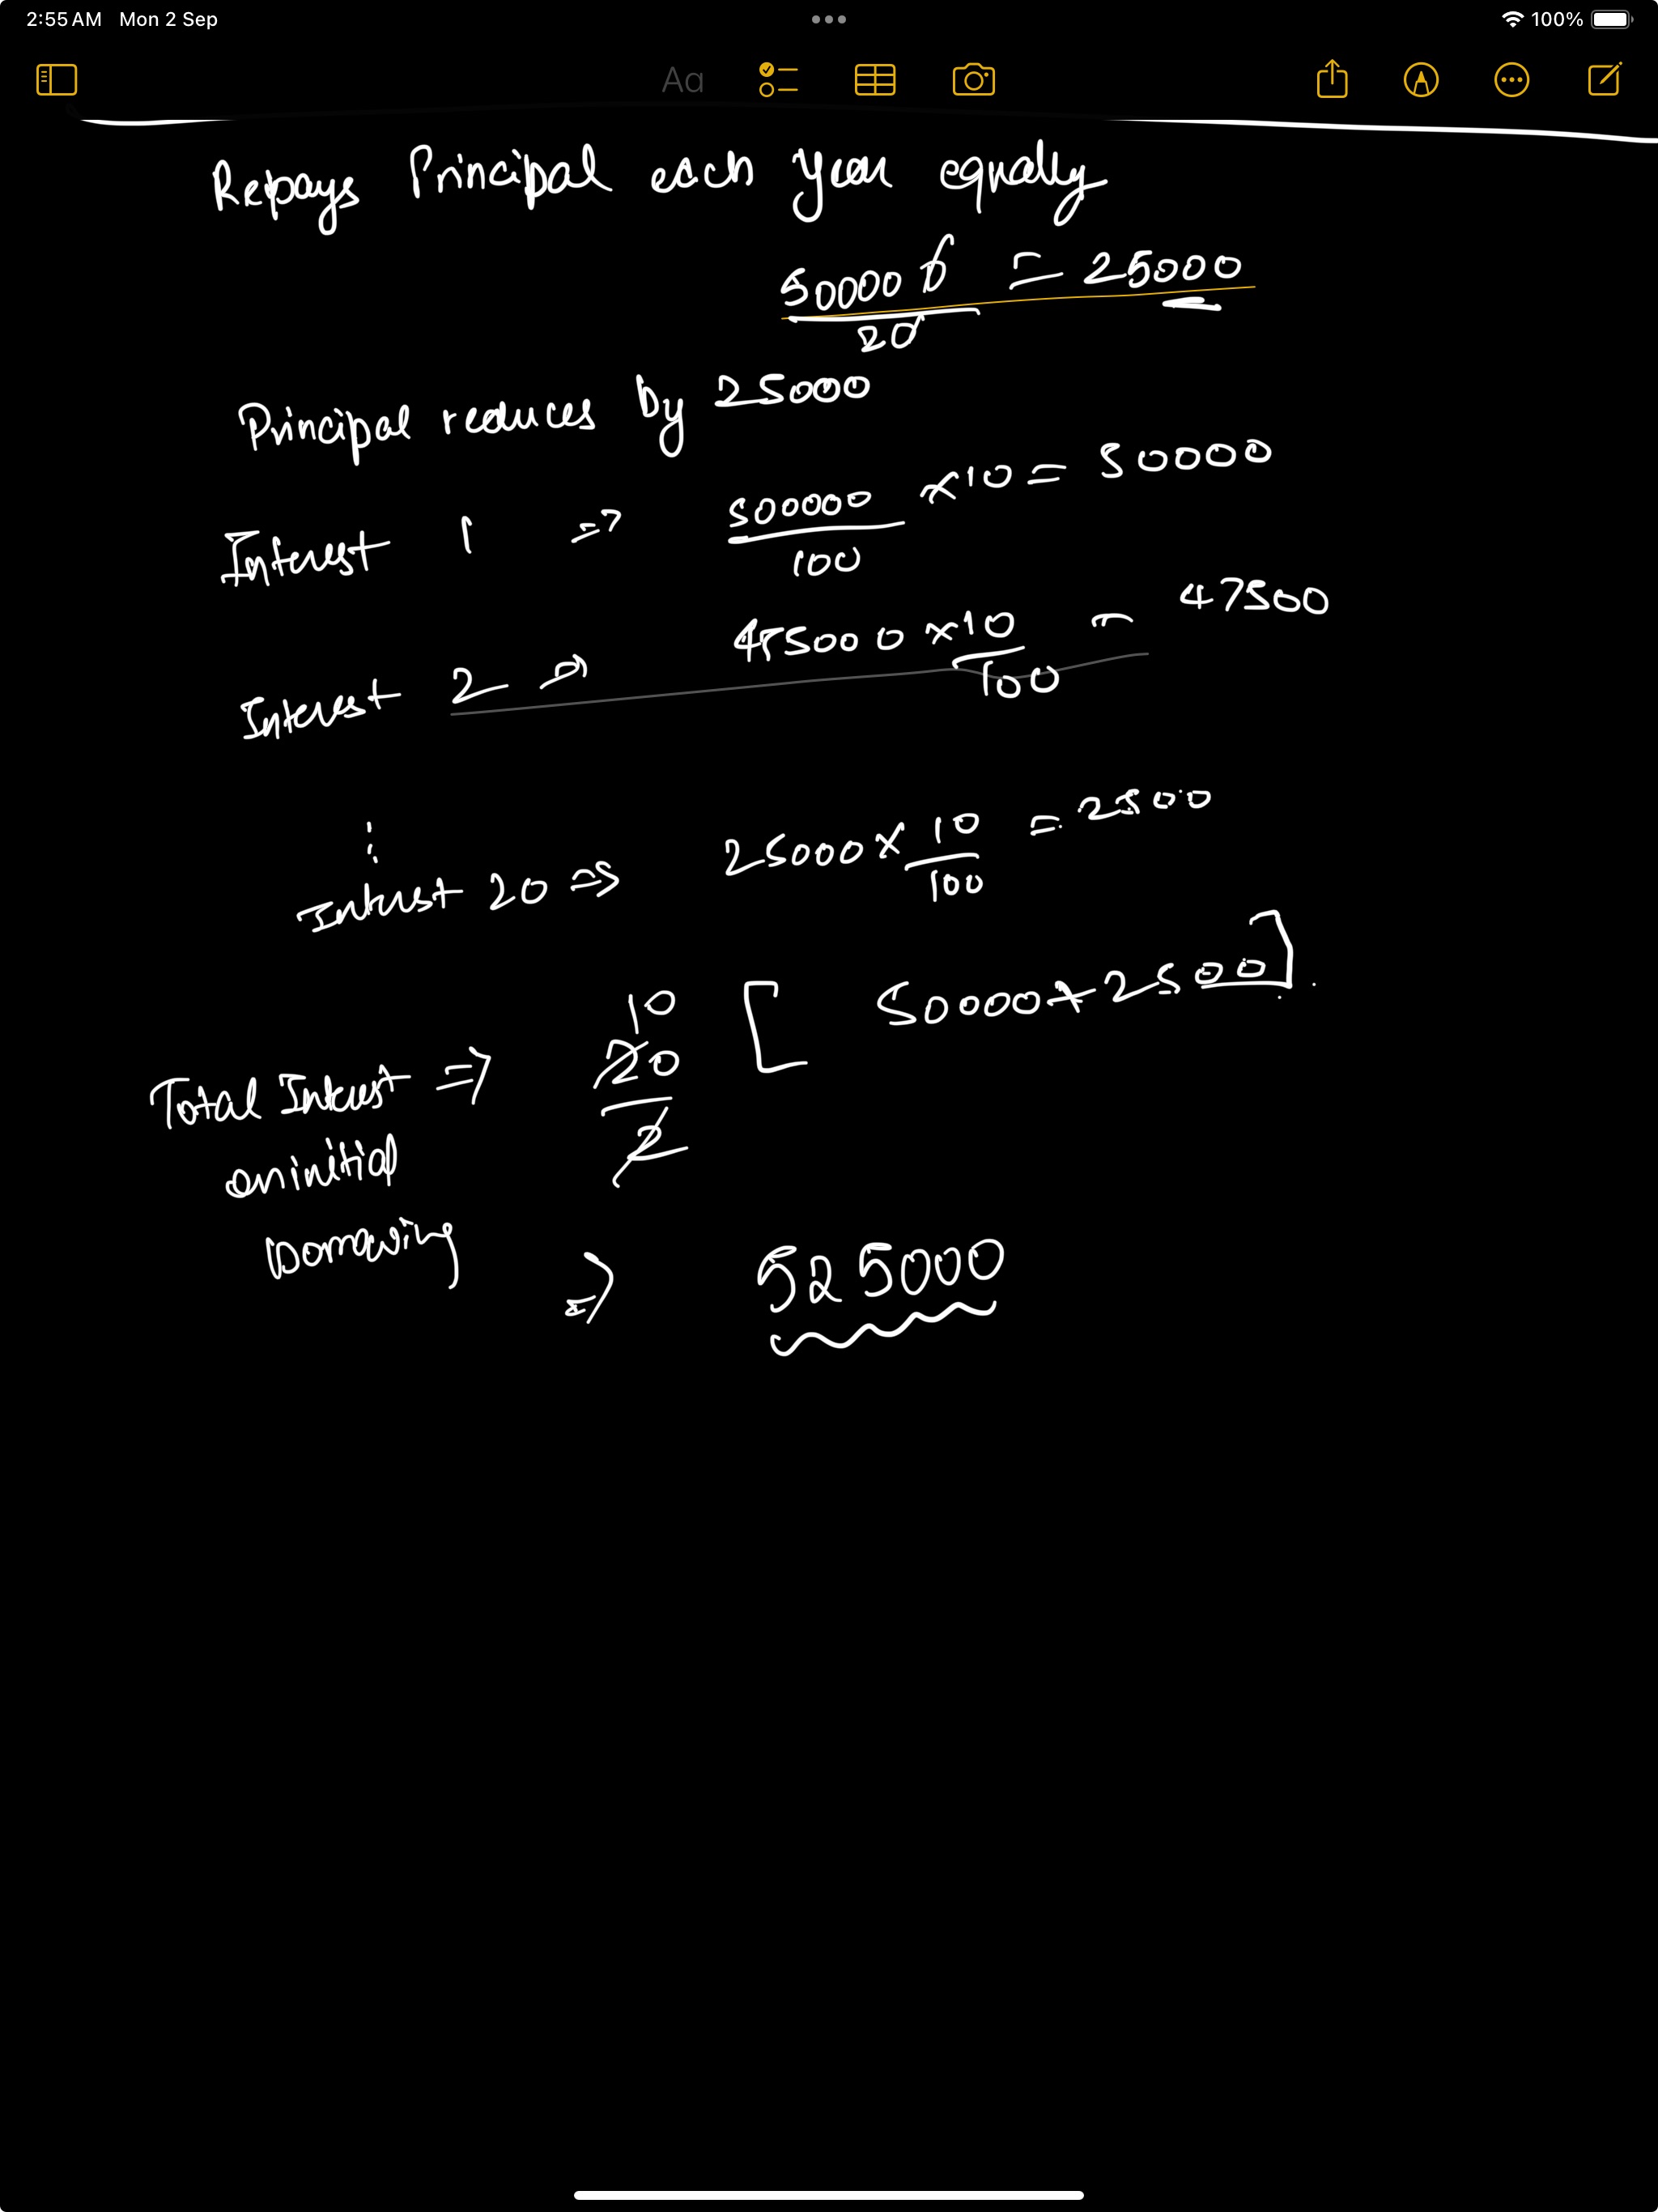 2:55 AM Mon 2 Sep
100%
Aa
Repays Principal each year equally
500000 / 20 = 25000
Principal reduces by 25000
Interest 1 => 500000 / 100 × 10 = 50000
Interest 2 => 475000 × 10 / 100 = 47500
⋮
Interest 20 => 25000 × 10 / 100 = 2500
10
Total Interest => 20 / 2 [ 50000 + 2500 ].
on initial
borrowing
=> 525000